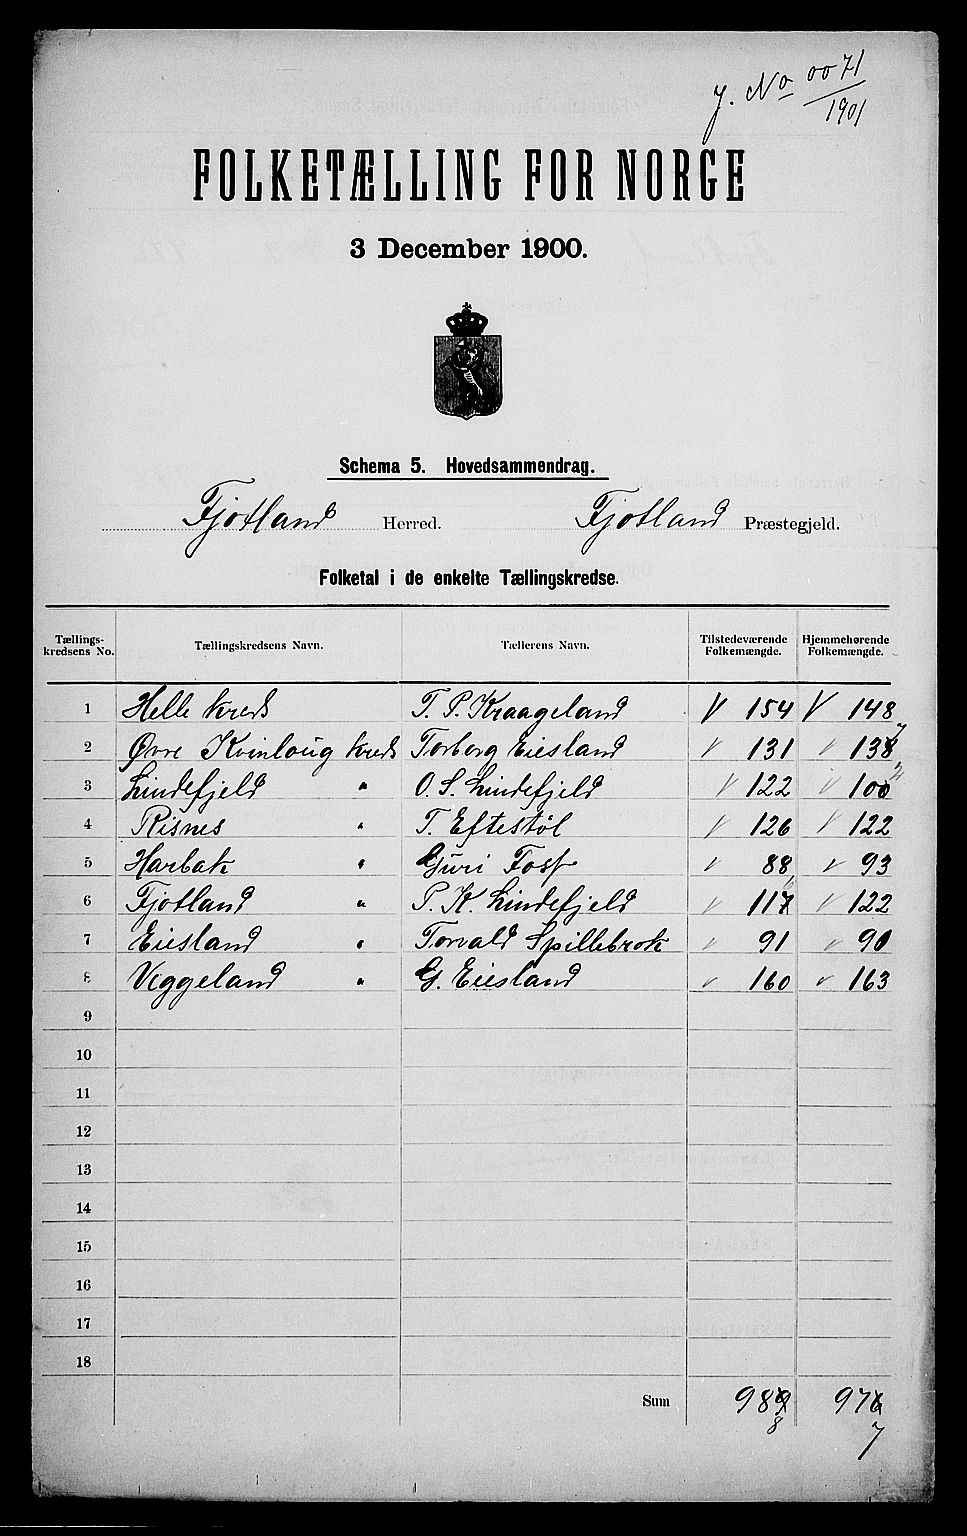 J. No 0071
1901
FOLKETÆLLING FOR NORGE
3 December 1900.
Schema 5. Hovedsammendrag.
Fjotland Herred. Fjotland Præstegjeld.
Folketal i de enkelte Tællingskredse.
Tællings-kredsens No. Tællingskredsens Navn. Tællerens Navn. Tilstedeværende Folkemængde. Hjemmehørende Folkemængde.
1 Helle kreds T. P. Kraageland V 154 V 148
2 Øvre Kvinloug kreds Torborg Eiesland V 131 V 138 7
3 Lindefjeld " O. S. Lindefjeld V 122 V 100
4 Risnes " T. Eftestöl V 126 V 122
5 Harbak " Guri Foss V 88 V 93
6 Fjotland " P. K. Lindefjeld V 117 6 V 122
7 Eiesland " Torvald Spillebrok V 91 V 90
8 Veggeland " G. Eiesland V 160 V 163
9
10
11
12
13
14
15
16
17
18
Sum 989 976
8 7